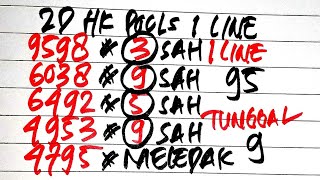 2D HK POOLS 1 LINE
9598 * 3 SAH 1 LINE
6038 * 9 SAH 95
6492 * 5 SAH
4953 * 9 SAH TUNGGAL
4795 * MELEDAK 9